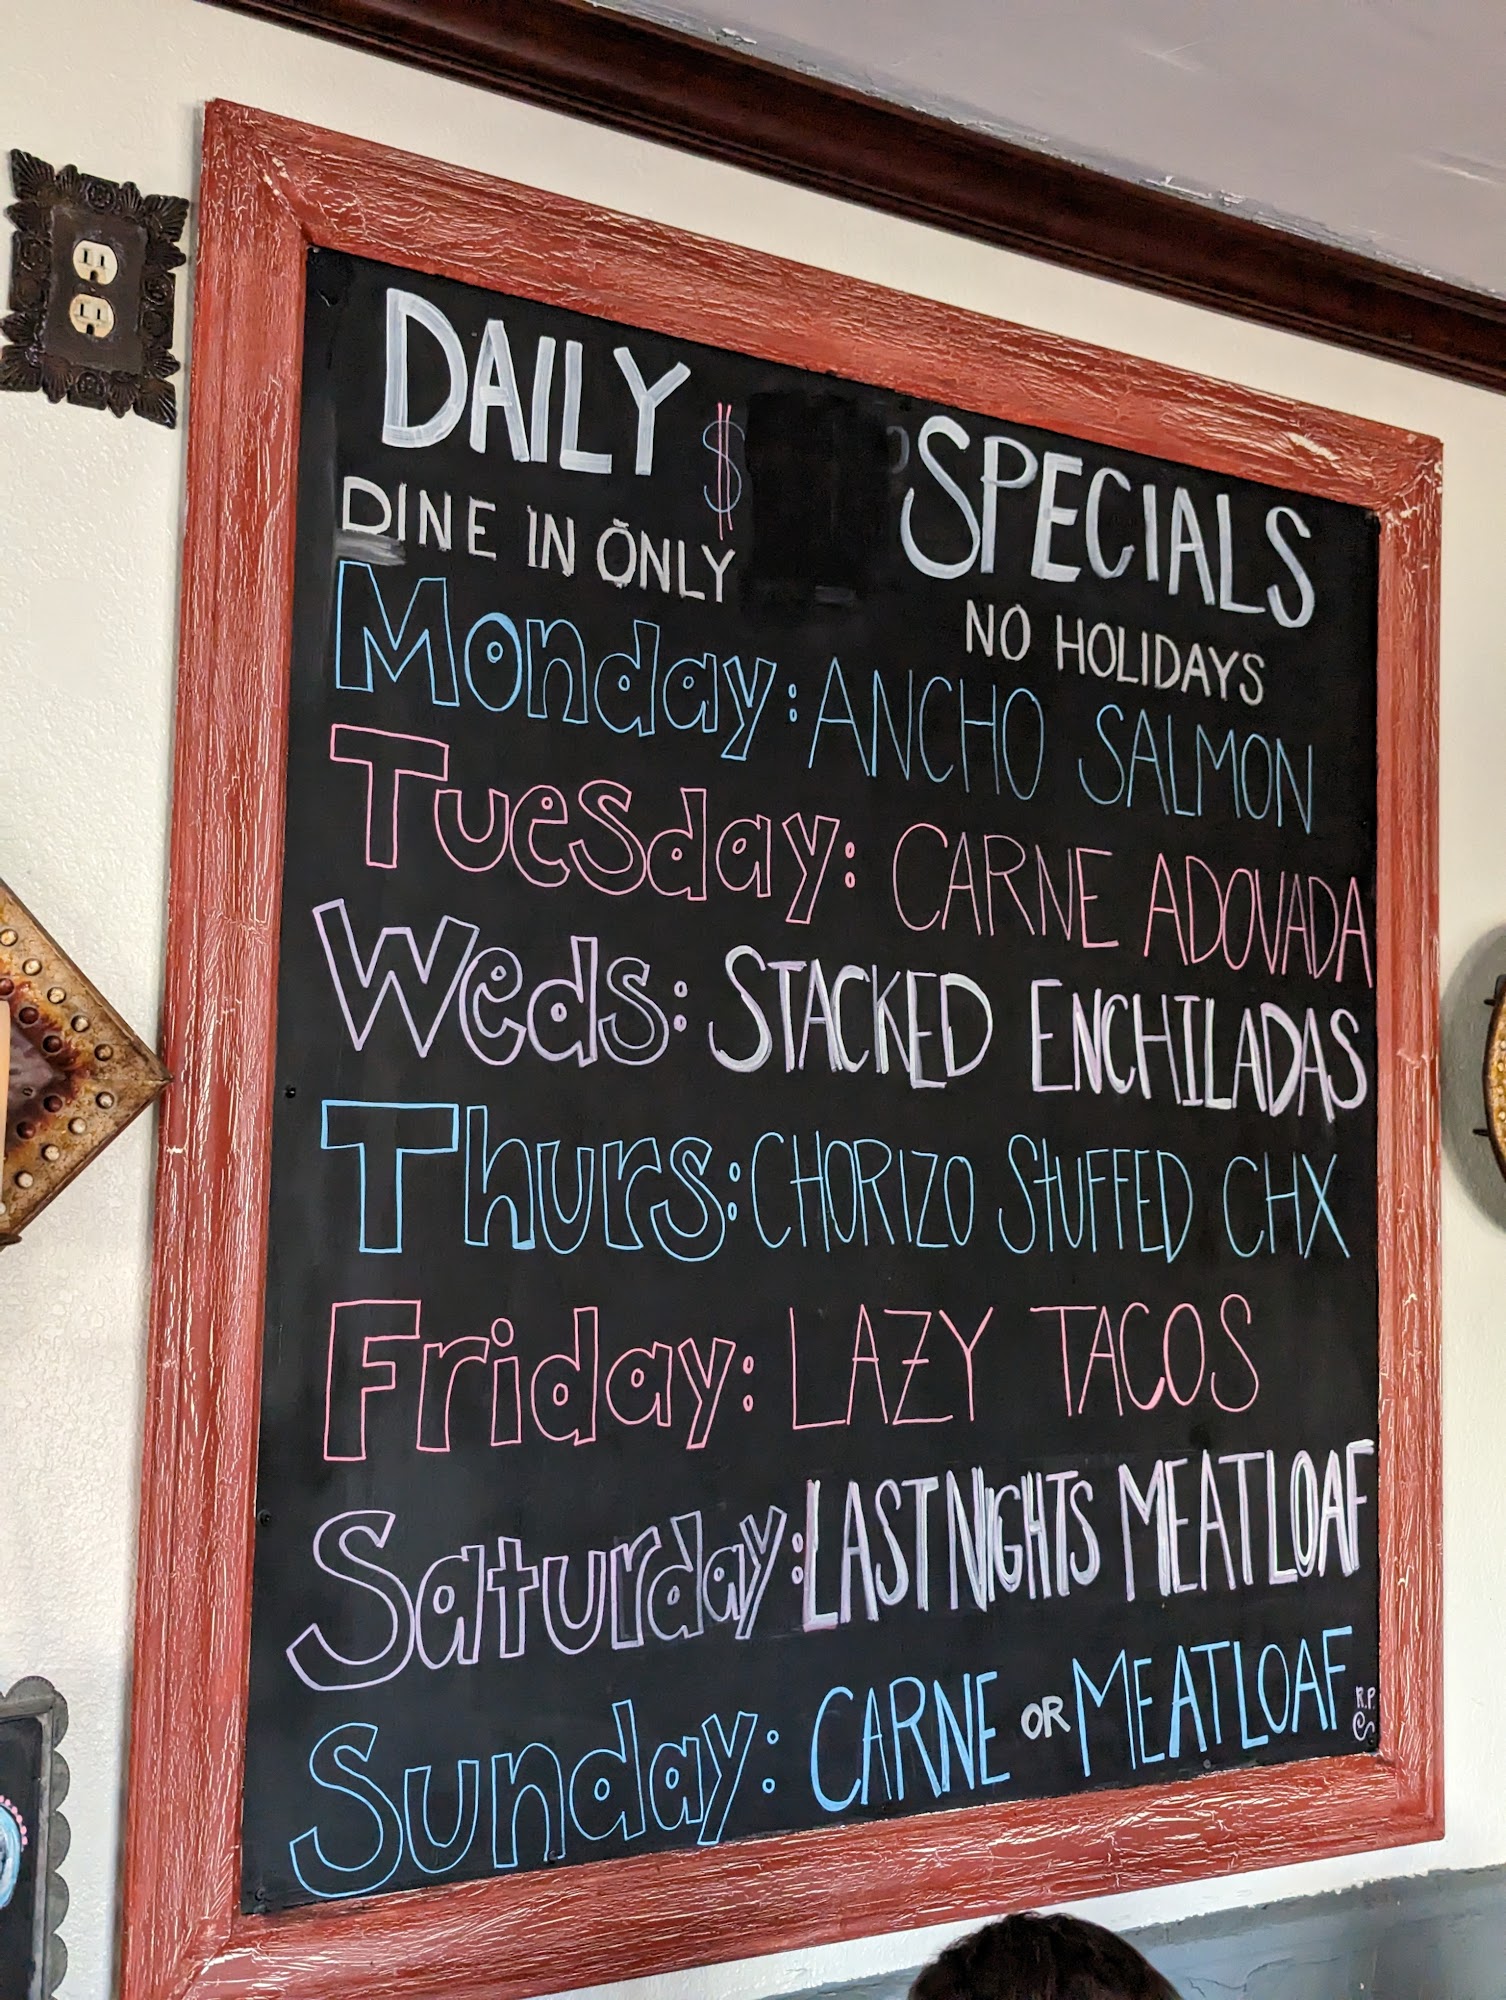 DAILY $ SPECIALS
DINE IN ONLY
NO HOLIDAYS
Monday: ANCHO SALMON
Tuesday: CARNE ADOVADA
Weds: STACKED ENCHILADAS
Thurs: CHORIZO STUFFED CHX
Friday: LAZY TACOS
Saturday: LAST NIGHTS MEATLOAF
Sunday: CARNE OR MEATLOAF
R.P.